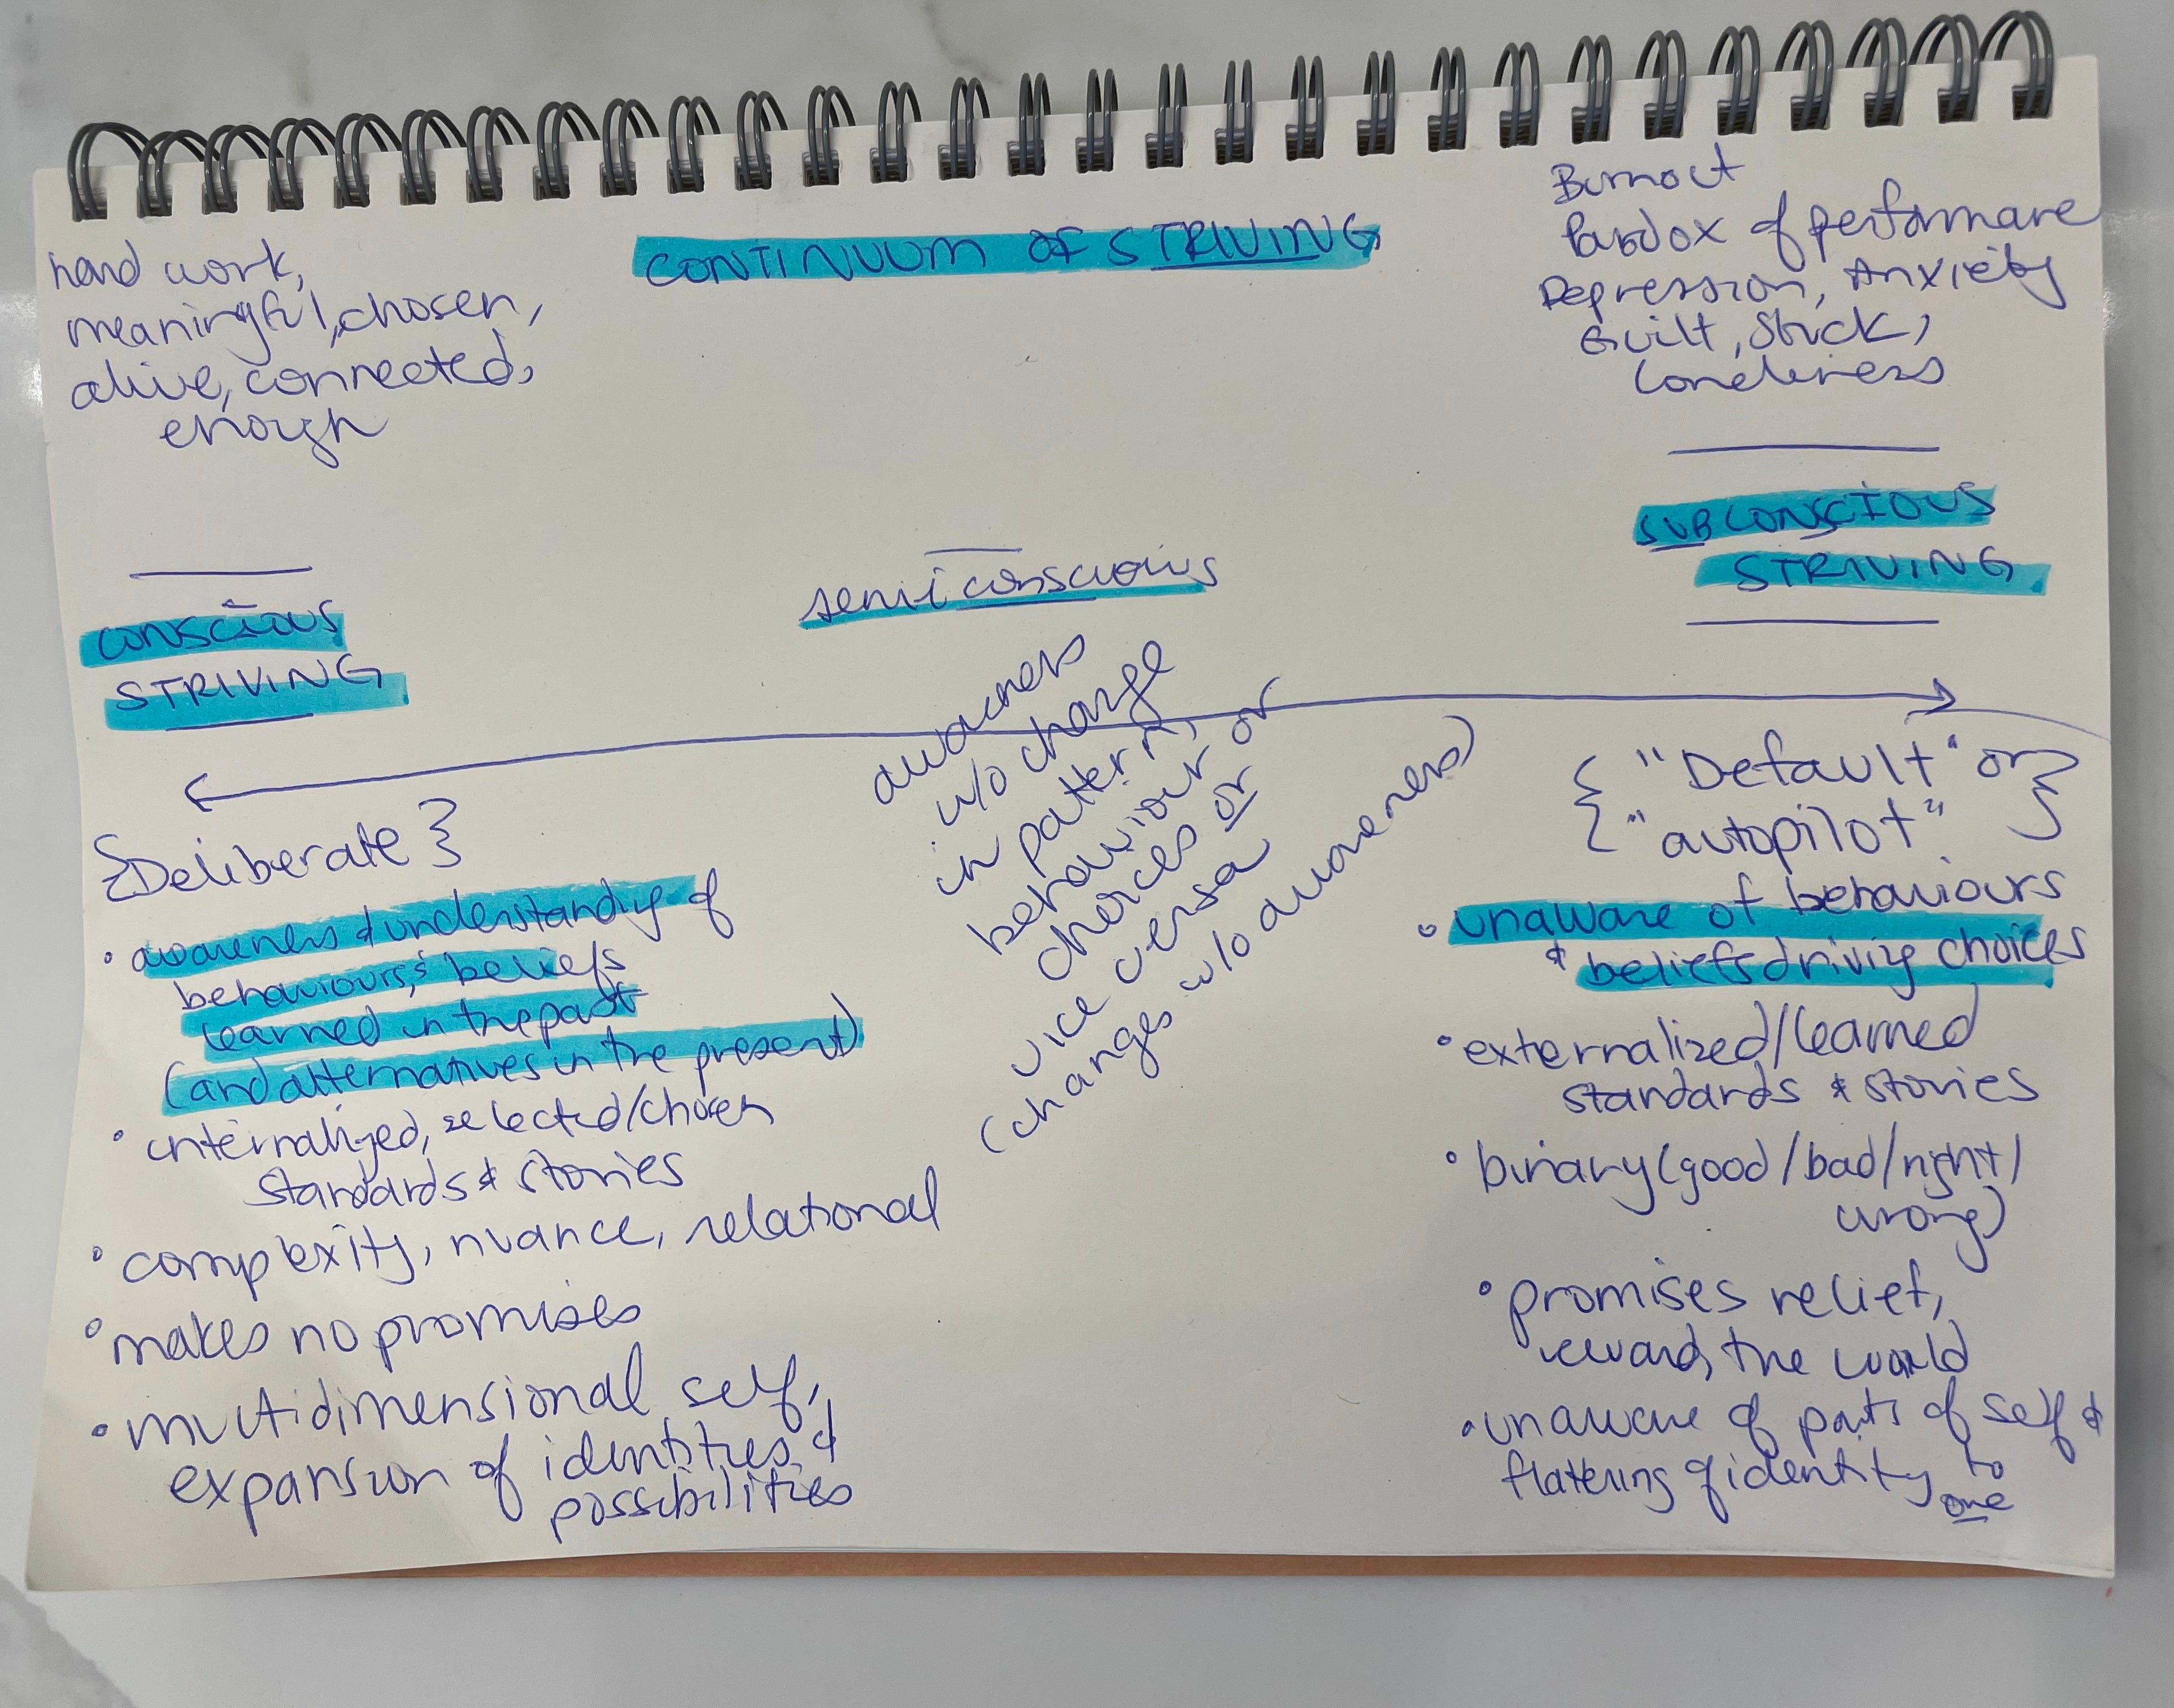 CONTINUUM OF STRIVING
hard work,
meaningful, chosen,
alive, connected,
enough
CONSCIOUS
STRIVING
{Deliberate}
• awareness & understanding of
behaviours, & beliefs
learned in the past
(and alternatives in the present)
• internalized, selected/chosen
standards & stories
• complexity, nuance, relational
• makes no promises
• multidimensional self,
expansion of identities &
possibilities
semiconscious
awareness
w/o change
in pattern,
behaviour or
choices or
vice versa
(changes w/o awareness)
Burnout
Paradox of performance
Depression, Anxiety
Guilt, Stuck,
Loneliness
SUBCONSCIOUS
STRIVING
{"Default" or}
{"autopilot"}
• unaware of behaviours
& beliefs driving choices
• externalized/learned
standards & stories
• binary (good/bad/right/
wrong)
• promises relief,
reward, the world
• unaware of parts of self &
flattening of identity to
one